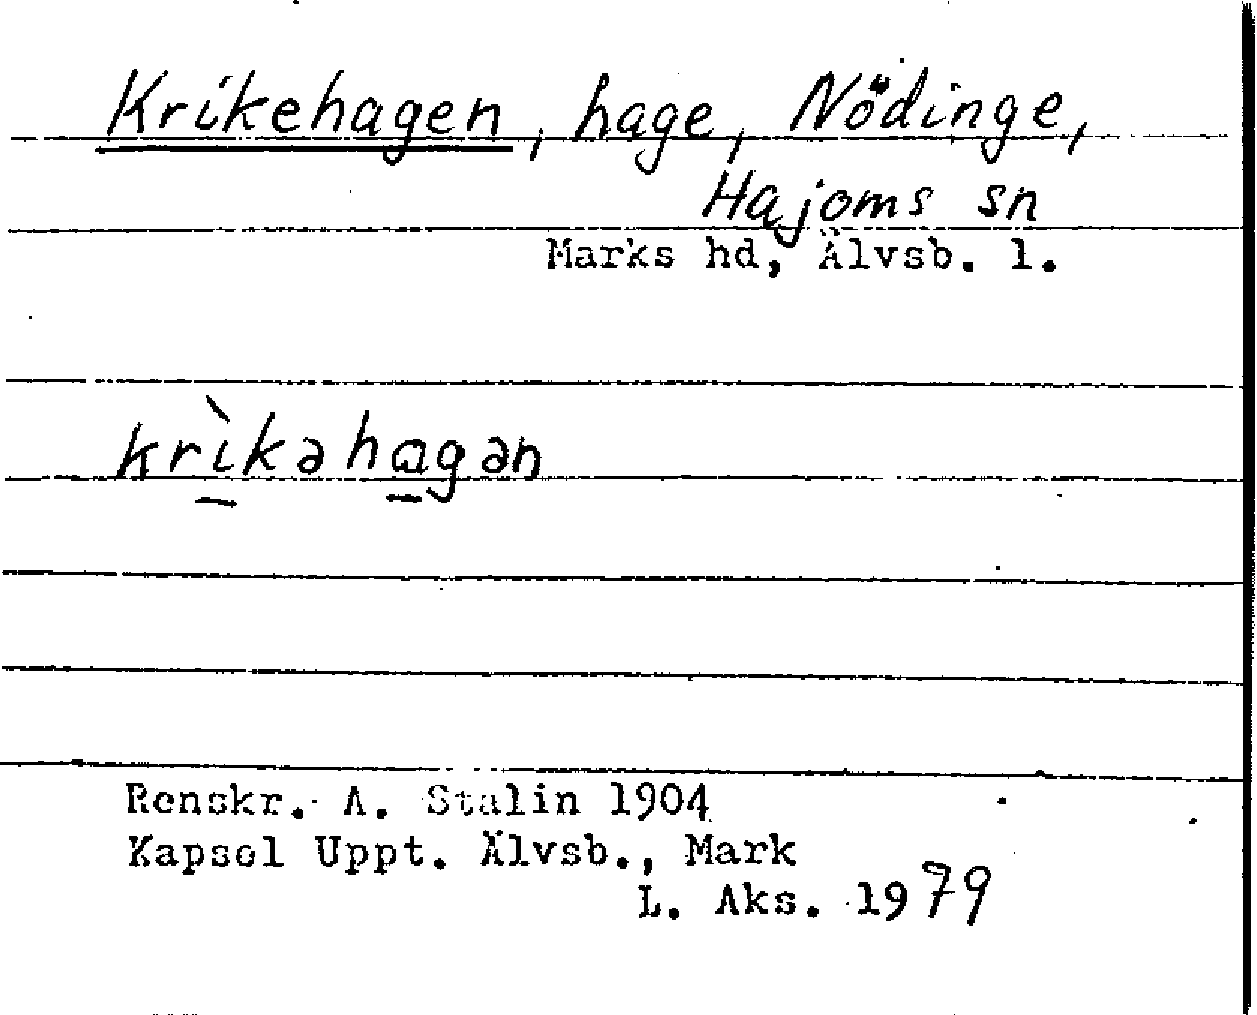 Krikehagen, hage, Nödinge,
Hajoms sn
Marks hd, Älvsb. l.
krìkəhagən
Renskr. A. Stalin 1904
Kapsel Uppt. Älvsb., Mark
L. Aks. 1979